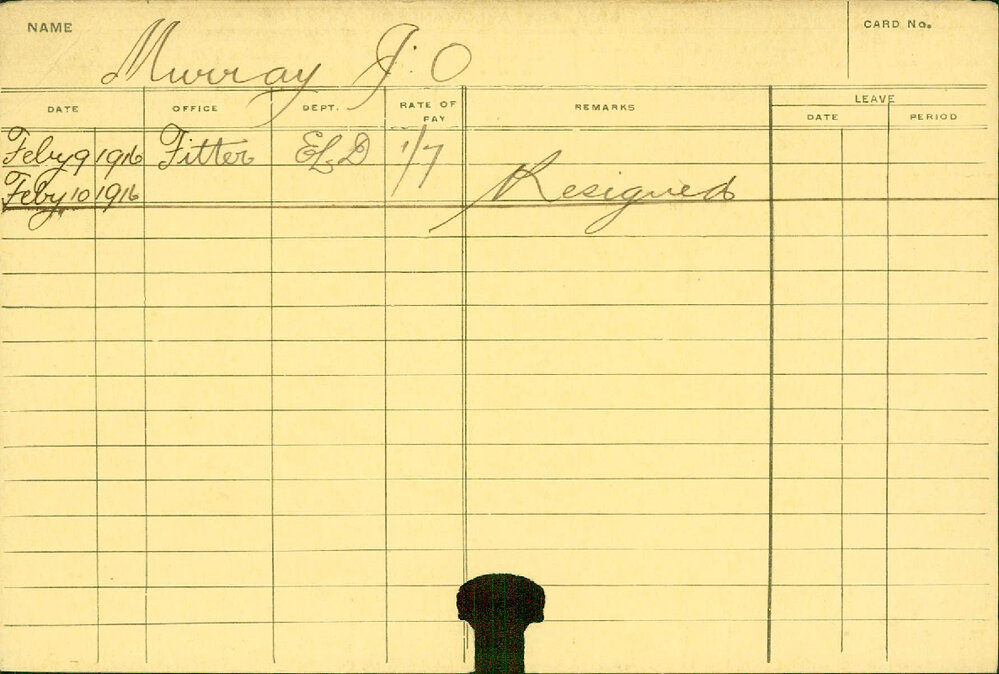 NAME Murray J. O CARD No.
DATE OFFICE DEPT. RATE OF PAY REMARKS LEAVE
DATE PERIOD
Feby 9 1916 Fitter EL.D 1/7
Feby 10 1916 Resigned